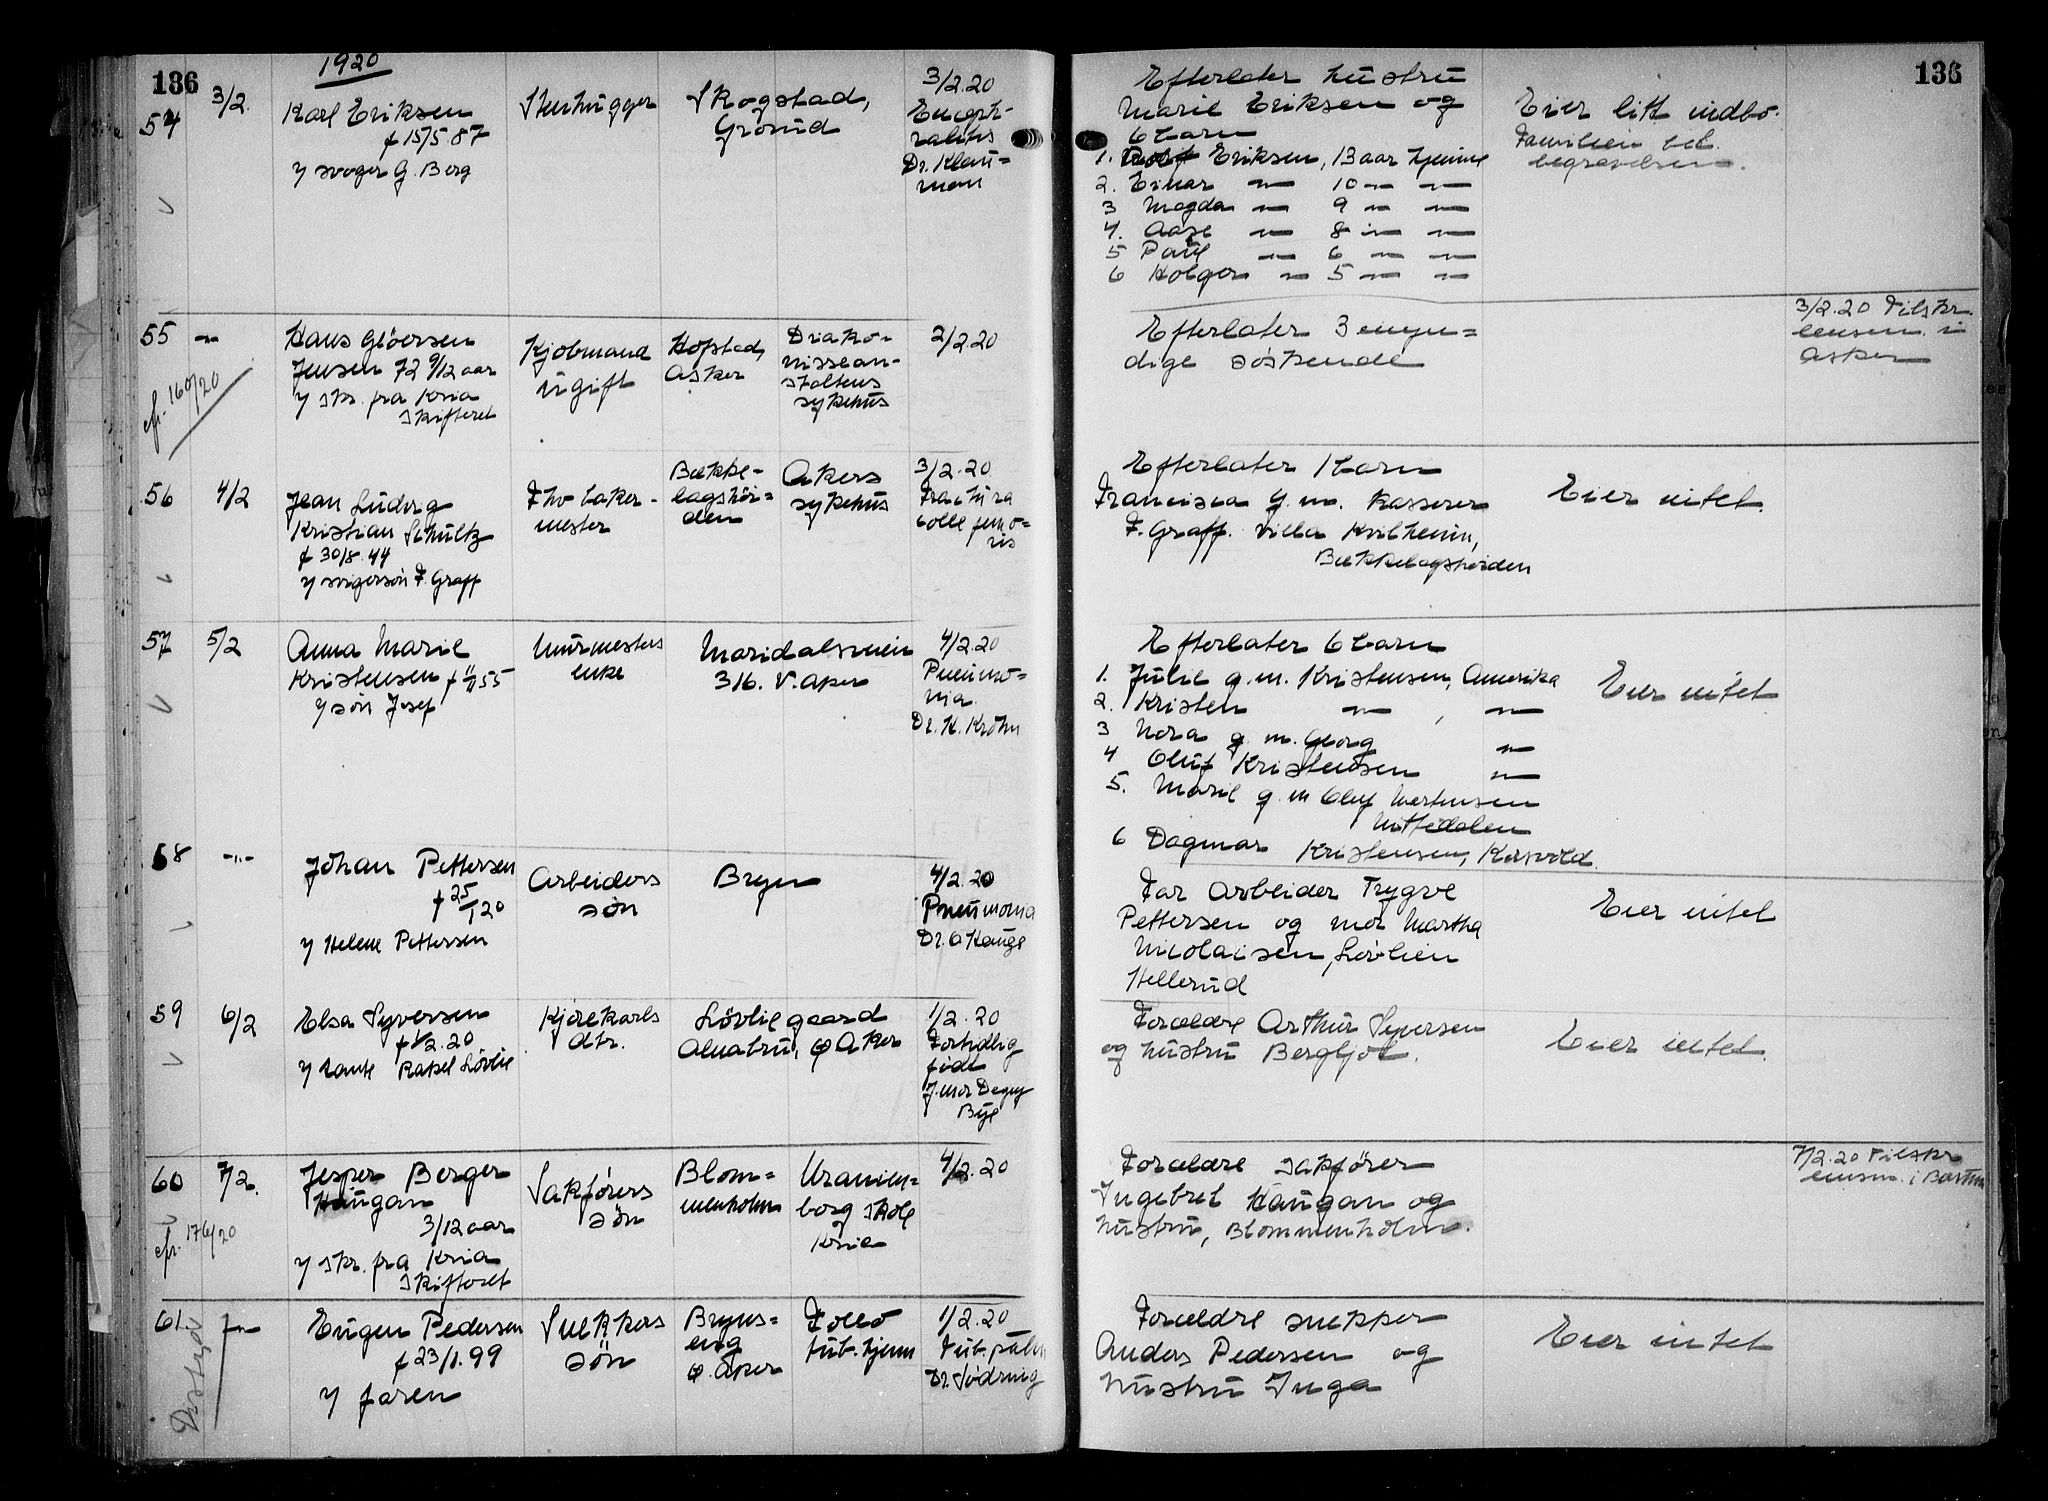 136
1920
54
3/2
Karl Eriksen
f 15/5.87
/ svoger G. Berg
Stenhugger
Skogstad,
Grorud
3/2.20
Dr. Klau=
man
Efterlater hustru
Marie Eriksen og
6 barn
1. Eriksen, 13 aar hjemme
2. Einar — 10 — —
3 Magda — 9 — —
4. Aage — 8 — —
5 Paul — 6 — —
6 Holger — 5 — —
Eier litt indbo.
Familien bet.
begravelsen.
136
55
—"—
cfr. 160/20
Hans Gløersen
Jensen 72 9/12 aar
/ skr. fra Kria
Skifteret
Kjøbmand
ugift
Hofstad,
Asker
Diako=
nissean-
staltens
sykehus
2/2.20
Efterlater 3 myn=
dige søskende
3/2.20 Tilskr.
lensm. i
Asker
56
4/2
Jean Ludvig
Kristian Schultz
f 30/8.44
/ svigersøn F. Graff
Fhv baker-
mester
Bække-
lagshøi=
den
Akers
sykehus
3/2.20
Fractura
colli femo=
ris
Efterlater 1 barn
Francisca g.m. kasserer
F. Graff. Villa Kvilheim,
Bækkelagshøiden
Eier intet.
57
5/2
Anna Marie
Kristensen f 11/11 55
/ søn Josef
Murmesters
enke
Maridalsveien
316. V. Aker
4/2.20
Pneumo=
nia.
Dr. K. Krohn
Efterlater 6 barn
1. Julie g.m. Kristensen, Amerika
2. Kristen — , —
3 Nora g.m. Georg —
4 Oluf Kristensen —
5. Marie g.m Oluf Mortensen
Nittedalen
6 Dagmar Kristensen, Korsvold.
Eier intet
58
—"—
Johan Pettersen
f 25/1 20
/ Helene Pettersen
Arbeiders
søn
Bryn
4/2.20
Pneumonia
Dr. O Hauge
Far arbeider Trygve
Pettersen og mor Martha
Nicolaisen, Løvlien
Hellerud
Eier intet
59
6/2
Elsa Syversen
f 1/2.20
/ tante Rakel Løvlie
Kjørekarls
dtr.
Løvlie gaard
Alnabru, Ø Aker
1/2.20
Fortidlig
født
J.mor Dagny
Bye
Forældre Arthur Syversen
og hustru Bergljot.
Eier intet.
60
7/2.
cfr. 176/20
Jesper Berger
Haugan
3/12 aar
/ skr. fra Kria
Skifteret
Sakførers
søn
Blom=
menholm
Uranien=
borg skole
Kria
4/2.20
Forældre sakfører
Ingebret Haugan og
hustru, Blommenholm.
7/2.20 Tilskr
lensm. i Bærum
61.
—"—
Eugen Pedersen
f 23/1.99
/ faren
Snekkers
søn
Bryns=
eng
Ø. Aker
Follo
tub. hjem
1/2.20
Tub. pulm
Dr. Sødring
Forældre snekker
Anders Pedersen og
hustru Inga
Eier intet